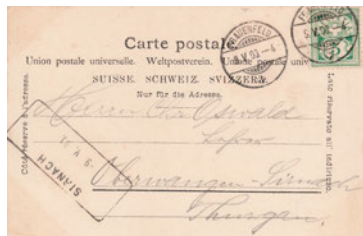 Carte postale.
Union postale universelle. Weltpostverein. Unione postale univ.
SUISSE. SCHWEIZ. SVIZZERA.
Nur für die Adresse.
Côté réservé à l'adresse.
Lato riservato all' indirizzo.
FRAUENFELD
SIRNACH
Herrn Oswald
Lehrer
Oberwangen-Sirnach
Thurgau.